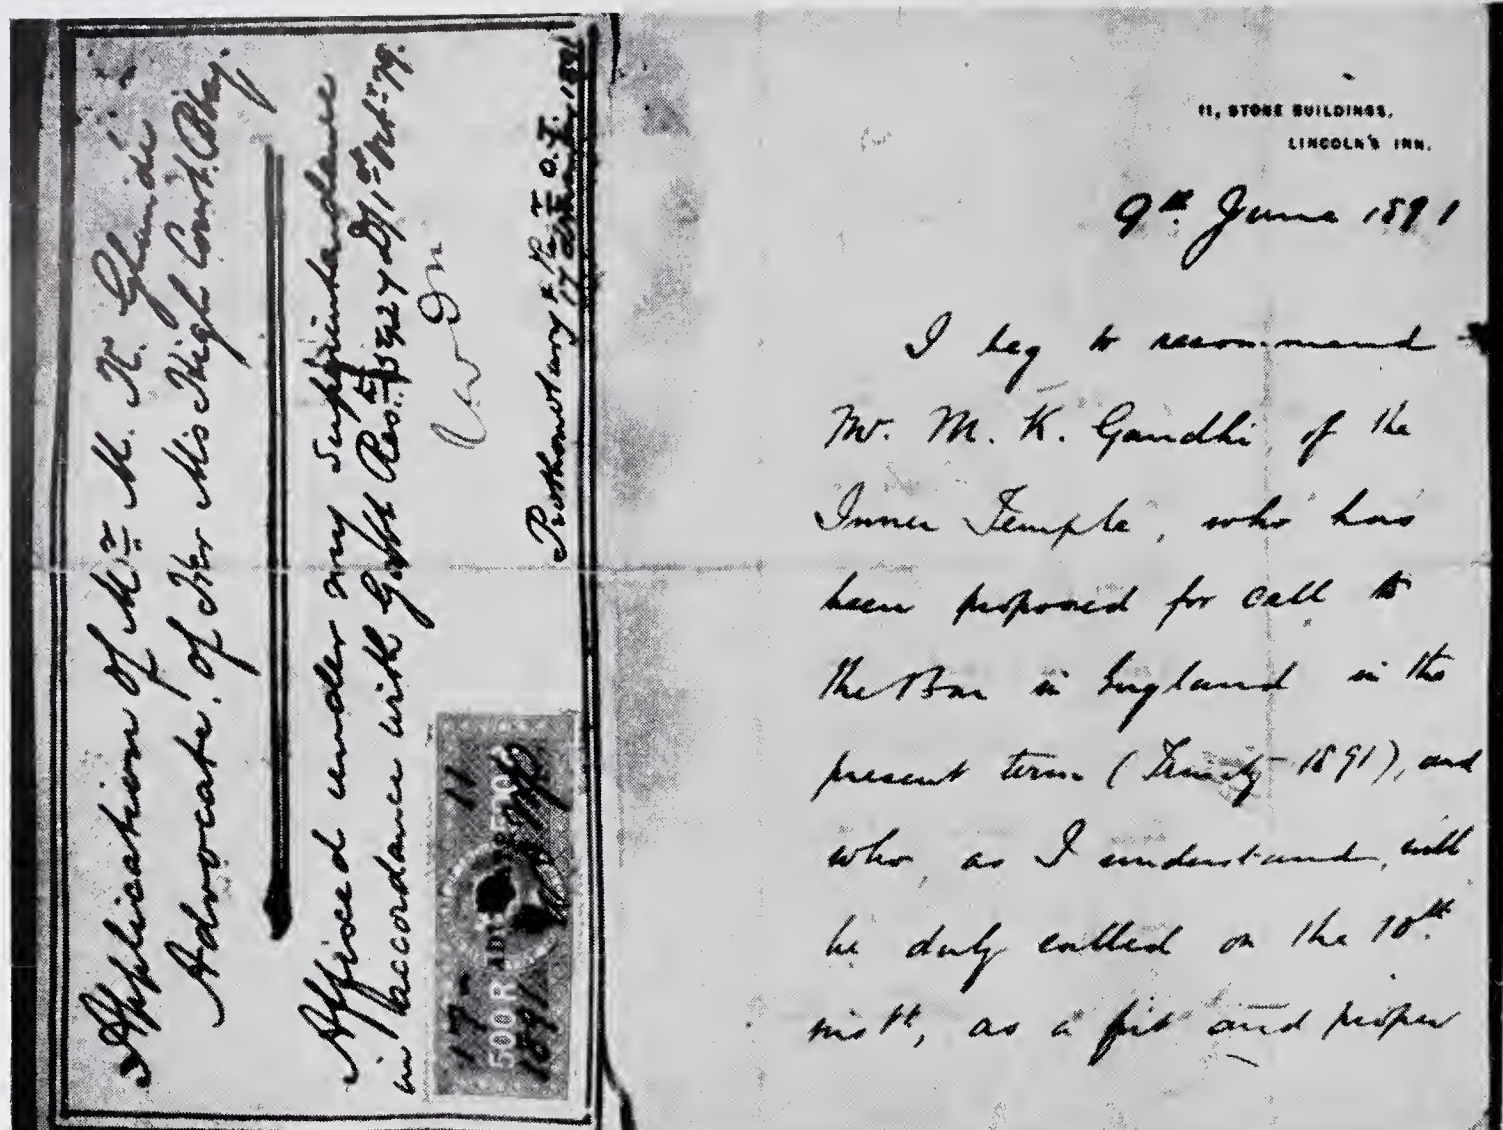 Application of Mr M. K. Ghandi
Advocate, of Her Mis High Court. Bbay.
Affixed under my Superintendence
in accordance with Govt Res: 5927 D/1st Novr 79.
Prothonotary &
17 1891
17 - 11
500 R
1891
11, STONE BUILDINGS,
LINCOLN'S INN.
9th June 1891
I beg to recommend
Mr. M. K. Gandhi of the
Inner Temple, who has
been proposed for call to
the Bar in England in the
present term (Trinity 1891), and
who, as I understand, will
be duly called on the 10th
instt, as a fit and proper